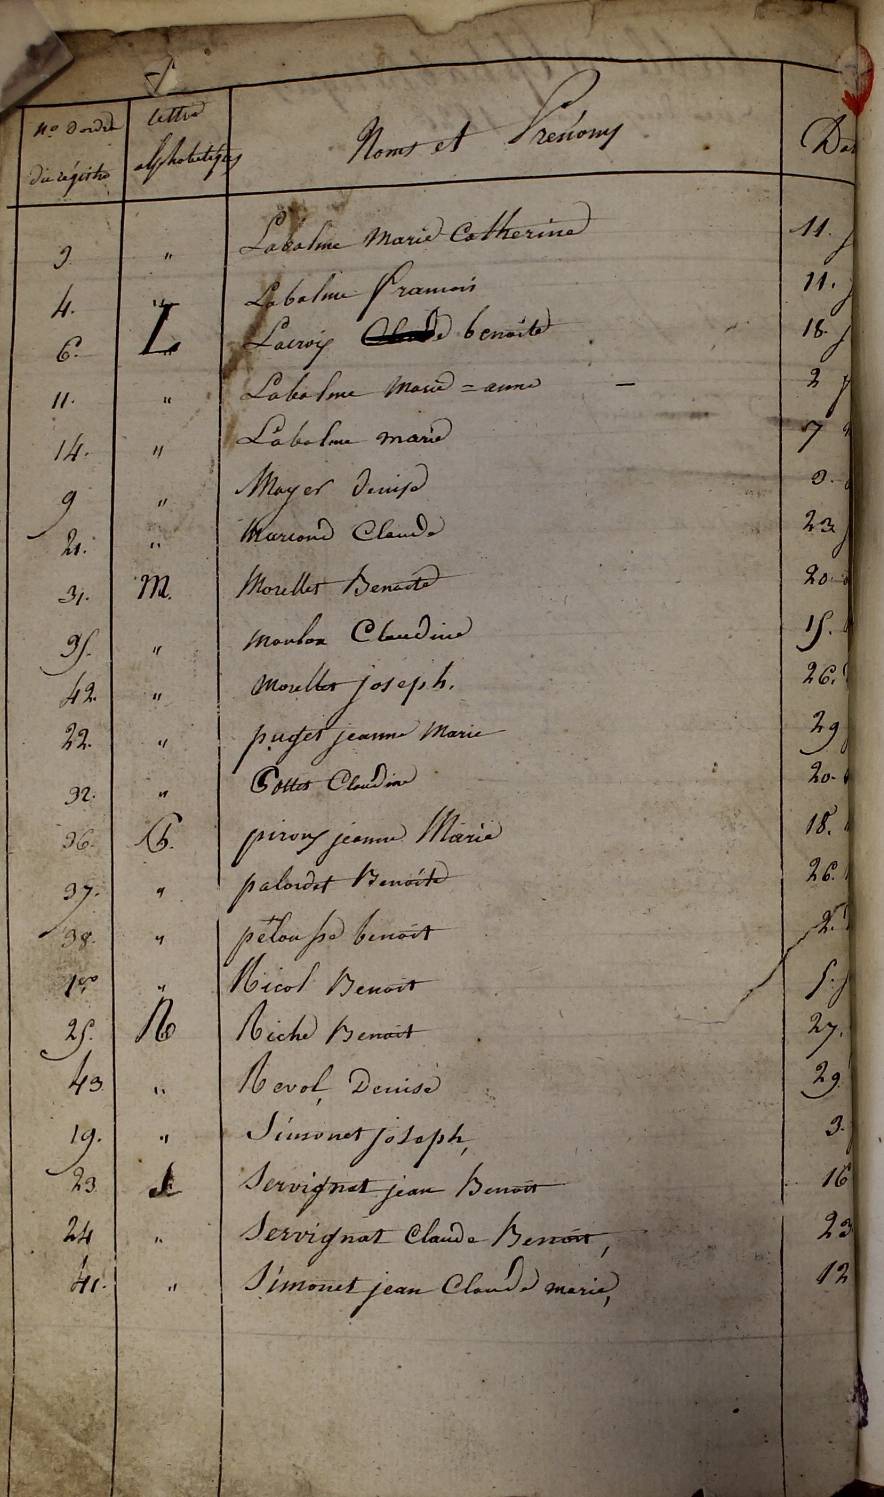 No d'ordre du régistre | lettre alphabetiques | Noms et Prénoms | Dat
3 " Labalme Marie Catherine 11. j
4. " Labalme francois 11. j
6. L Lacroix benoite 18. j
11. " Labalme Marie=anne — 2
14. " Labalme marie 7
9 " Mayer denise
21. " Marcond Claude 23
31. M. Morellet Benoite 20
35. " Moulon Claudine 15.
42. " Morellet joseph. 26.
22. " puget jeanne Marie 29
32. " Pottet Claudine 20.
36. P. piroux jeanne Marie 18.
37. " palordet Benoite 26.
38. " pélousse benoit 2.
1er " Nicol Benoit 5. j
25. R Riche Benoit 27.
43 " Revol, Denise 29
19. " Simonet joseph, 3.
23 S Servignat jean Benoit 16
24 " Servignat Claude Benoit, 23
41. " Simonet jean Claude marie, 12